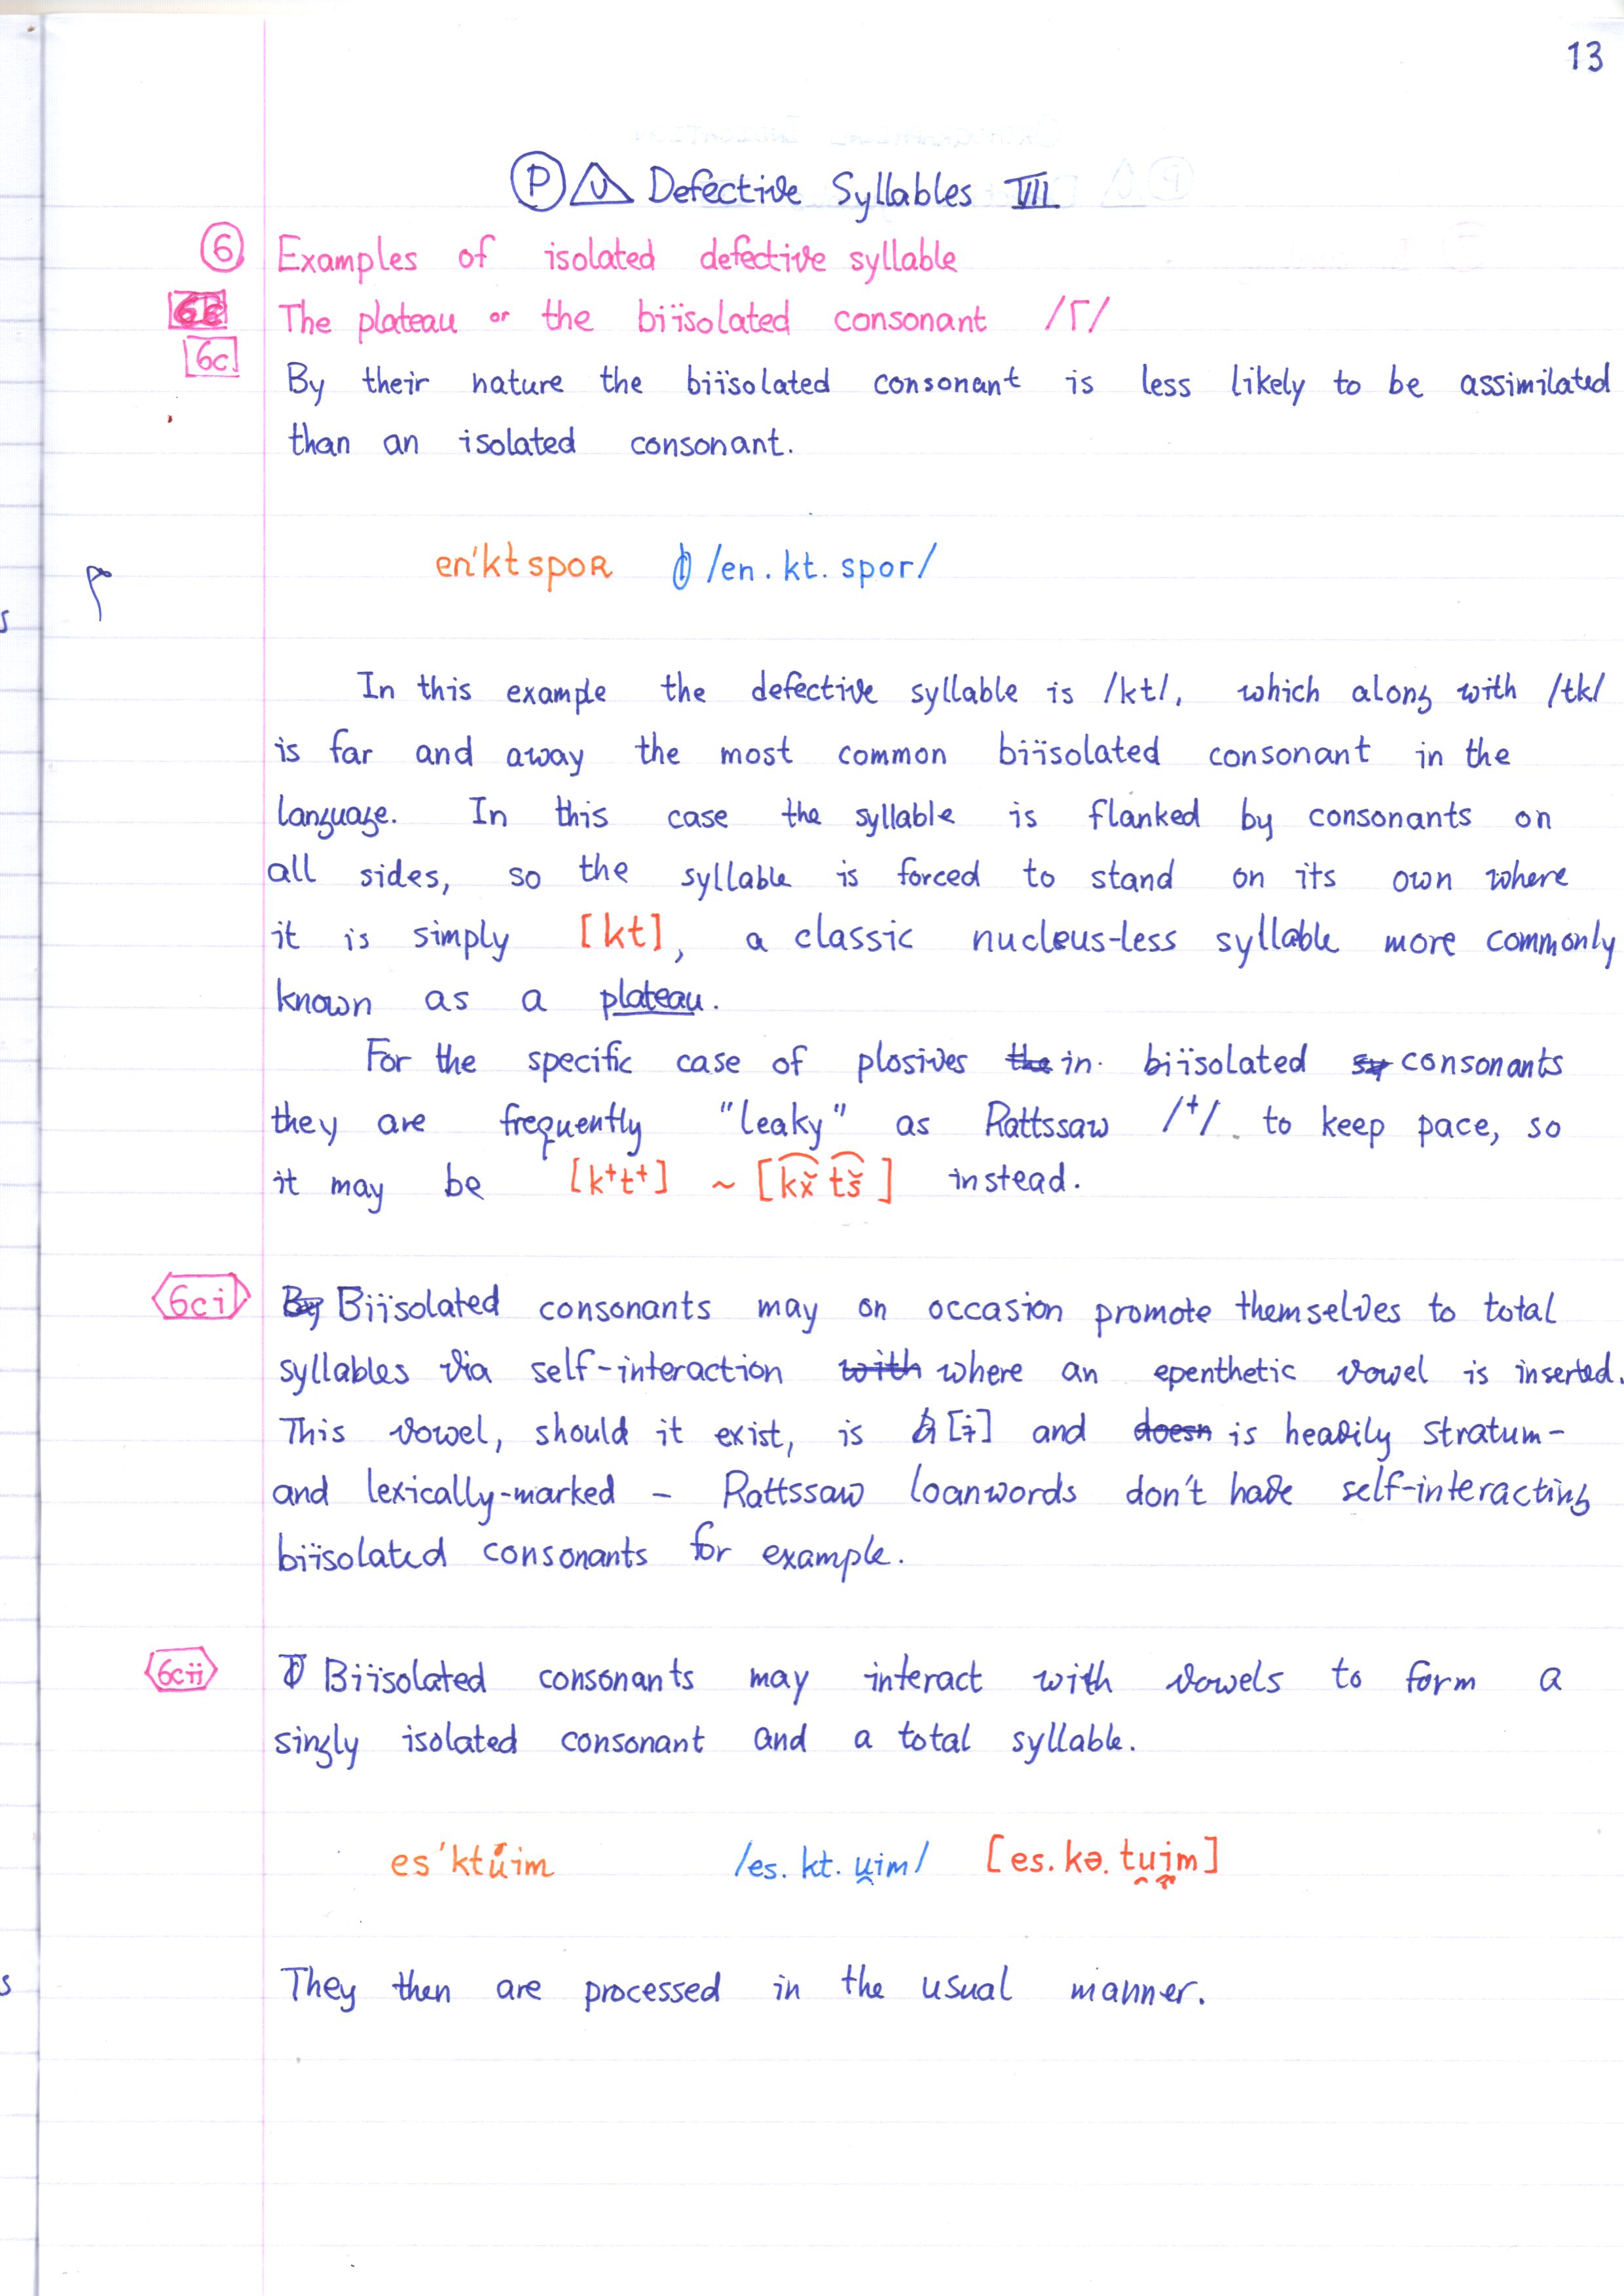 13
Ⓟ Defective Syllables VII
⑥ Examples of isolated defective syllable
The plateau or the biïsolated consonant /Γ/
6c
By their nature the biïsolated consonant is less likely to be assimilated
than an isolated consonant.
en'ktspoʀ /en.kt.spor/
In this example the defective syllable is /kt/, which along with /tk/
is far and away the most common biïsolated consonant in the
language. In this case the syllable is flanked by consonants on
all sides, so the syllable is forced to stand on its own where
it is simply [kt], a classic nucleus-less syllable more commonly
known as a plateau.
For the specific case of plosives the in biïsolated sy consonants
they are frequently "leaky" as Rattssaw /⁺/ to keep pace, so
it may be [k⁺t⁺] ~ [k͡x̌ t͡š] instead.
6ci By Biïsolated consonants may on occasion promote themselves to total
syllables via self-interaction with where an epenthetic vowel is inserted.
This vowel, should it exist, is [ɨ] and doesn is heavily stratum-
and lexically-marked – Rattssaw loanwords don't have self-interacting
biïsolated consonants for example.
6cii Biïsolated consonants may interact with vowels to form a
singly isolated consonant and a total syllable.
es'ktúim /es.kt.u̯im/ [es.kə.tu̯i̯m]
They then are processed in the usual manner.